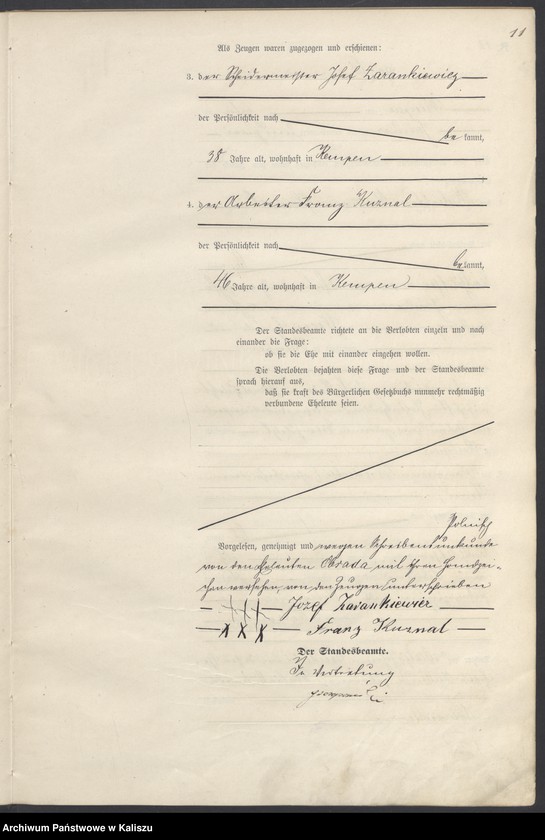 11
Als Zeugen waren zugezogen und erschienen:
3. der Schneidermeister Josef Zarankiewicz
der Persönlichkeit nach
be kannt,
38 Jahre alt, wohnhaft in Kempen
4. der Arbeiter Franz Kuznal
der Persönlichkeit nach
be kannt,
46 Jahre alt, wohnhaft in Kempen
Der Standesbeamte richtete an die Verlobten einzeln und nach
einander die Frage:
ob sie die Ehe mit einander eingehen wollen.
Die Verlobten bejahten diese Frage und der Standesbeamte
sprach hierauf aus,
daß sie kraft des Bürgerlichen Gesetzbuchs nunmehr rechtmäßig
verbundene Eheleute seien.
Polnisch
Vorgelesen, genehmigt und wegen Schreibensunkunde
von den Eheleuten Obrada mit ihren Handzei-
chen versehen, von den Zeugen unterschrieben
+++ Jozef Zarankiewicz
x x x Franz Kuznal
Der Standesbeamte.
In Vertretung
Archiwum Państwowe w Kaliszu